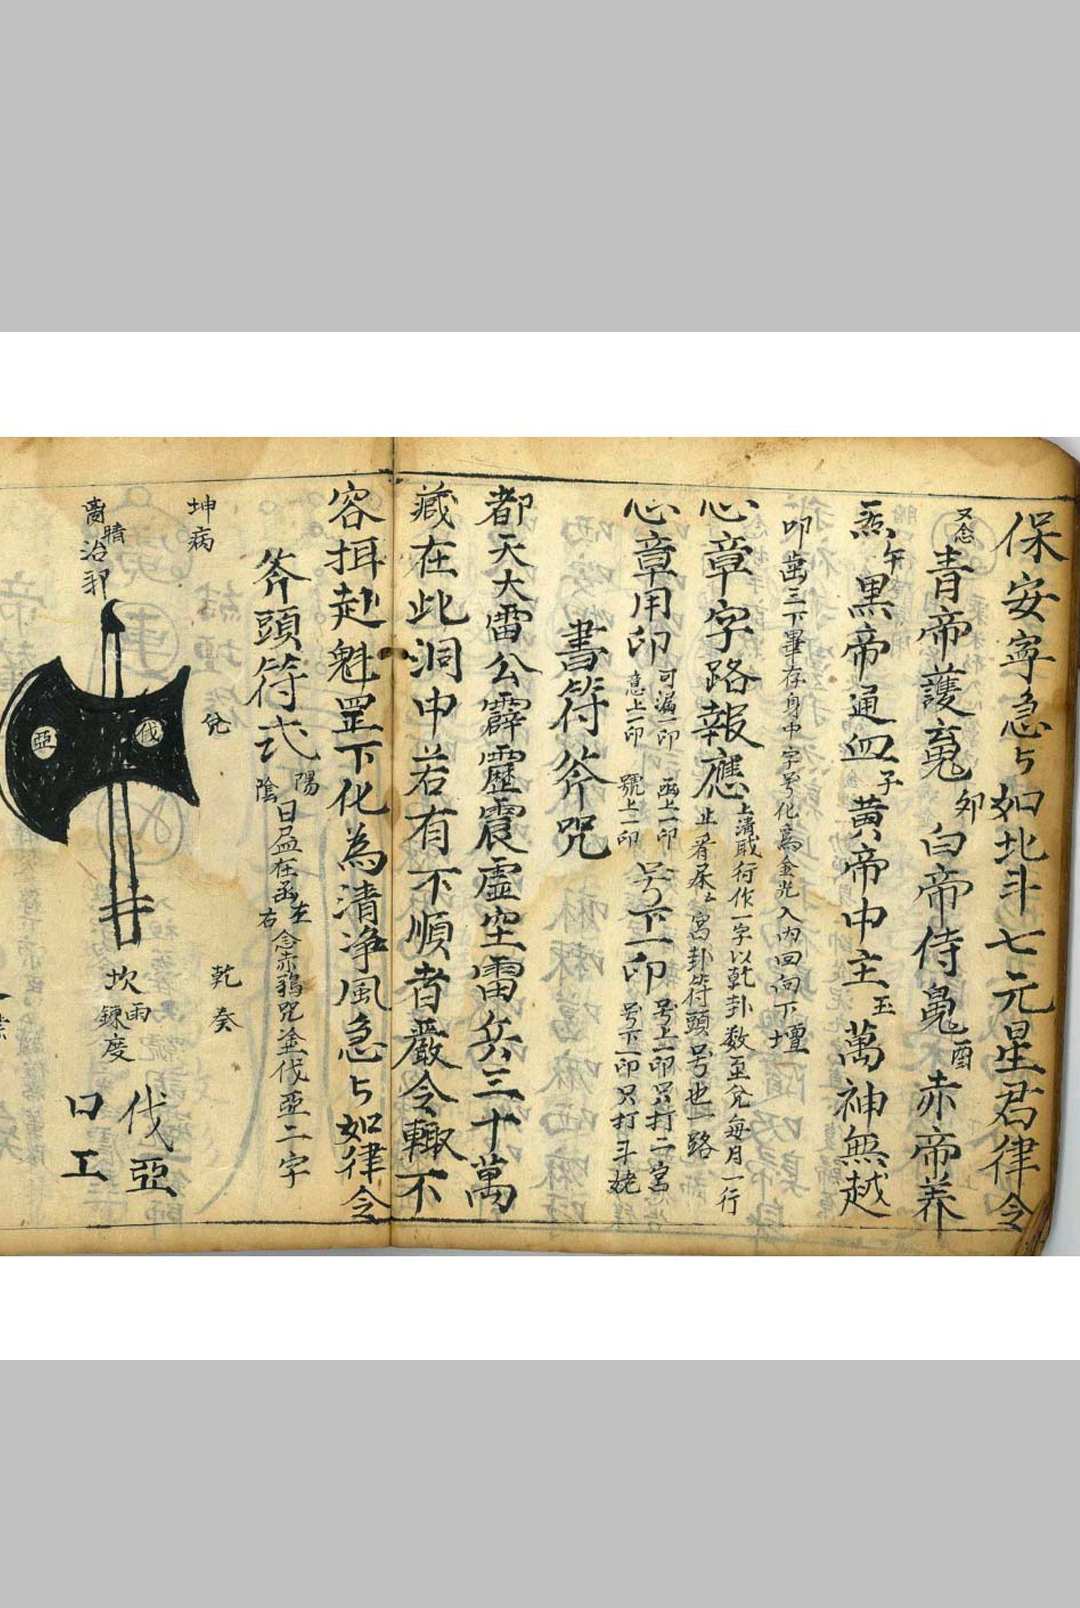 保安寧急与如北斗七元星君律令
又念
青帝護䰟卯白帝侍䰟酉赤帝养
炁午黑帝通血子黄帝中主玉萬神無越
叩齒三下畢存身中字号化為金光入內回向下壇
心章字路報應上清戝行作一字以乾卦数至兌每月一行
止看尿上寫卦符頭号也一路
心章用印可漏一印 函上一印号下一印号上一印只打二宮
意上一印 號上一印 号下一印只打斗姥
書符斧咒
都天大雷公霹靂震虚空雷兵三十萬
藏在此洞中若有不順者嚴令輙不
容拝起魁罡下化為清净風急与如律令
斧頭符式陽陰日益在函左右念赤鴉咒塗伐亞二字
坤病
兌
乾癸
晴
治
伐
亞
坎雨
鍊度
伐亞
口工